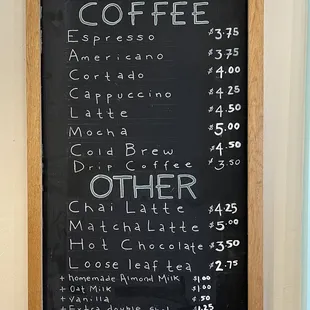 COFFEE
Espresso $3.75
Americano $3.75
Cortado $4.00
Cappuccino $4.25
Latte $4.50
Mocha $5.00
Cold Brew $4.50
Drip Coffee $3.50
OTHER
Chai Latte $4.25
Matcha Latte $5.00
Hot Chocolate $3.50
Loose leaf tea $2.75
+ Homemade Almond Milk $1.00
+ Oat Milk $1.00
+ Vanilla $.50
+ Extra double shot $1.25